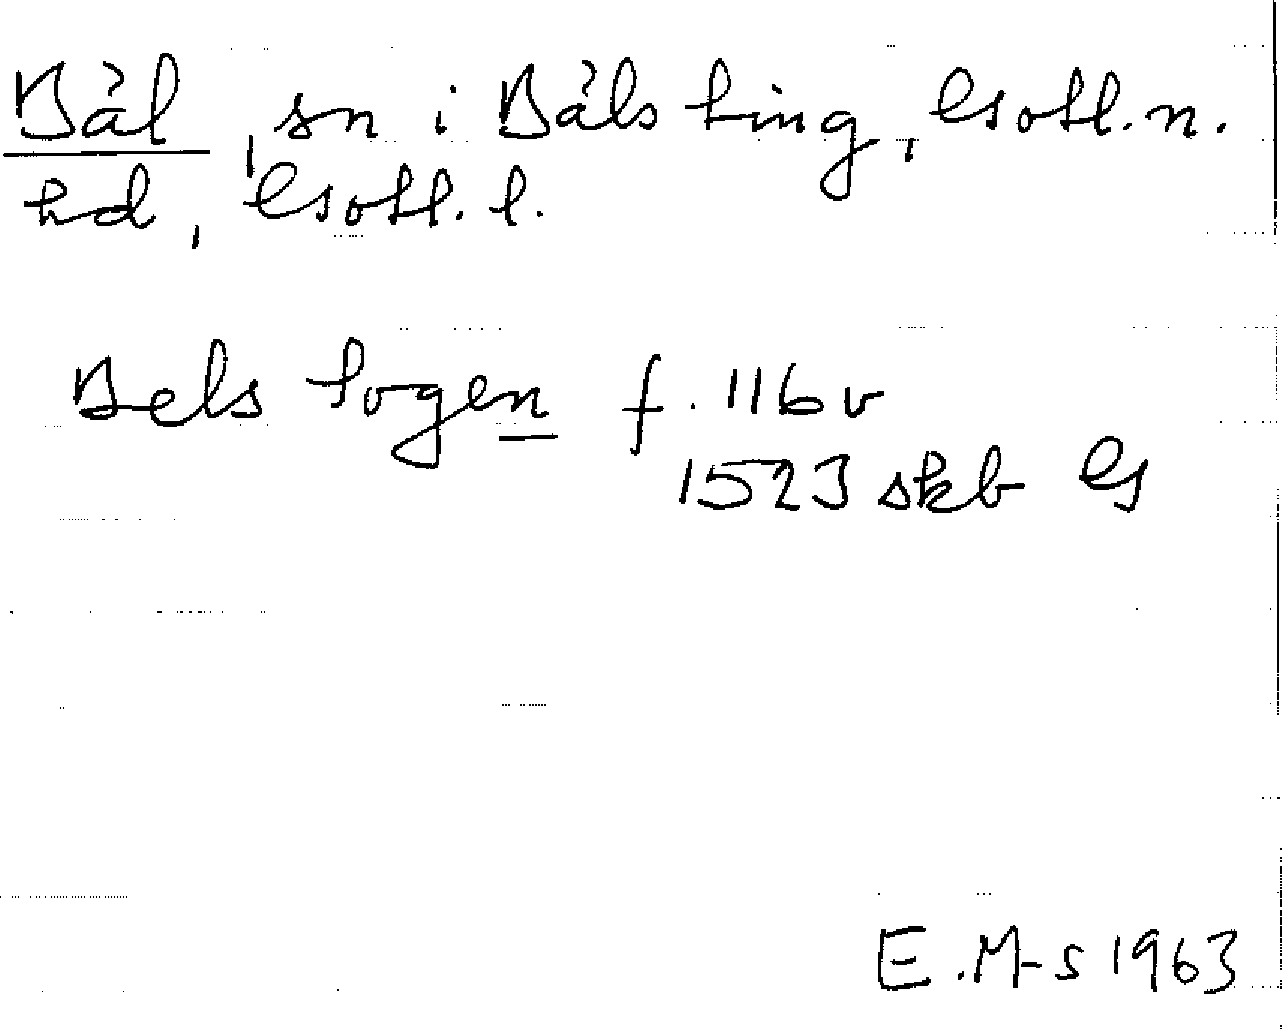 Bål, sn i Båls ting, Gotl. n.
hd, Gotl. l.
Bels sogen f. 116 v
1523 skb G
E. M-s 1963